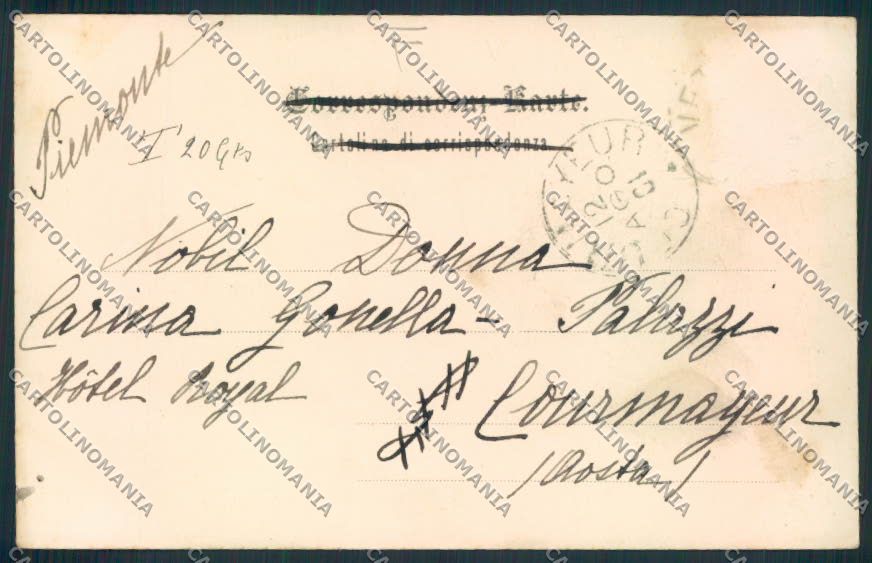 Piemonte
Correspondenz-Karte.
Cartolina di corrispondenza
Nobil Donna
Carina Gonella - Paluzzi
Hôtel Royal
Courmayeur
(Aosta)
CARTOLINOMANIA